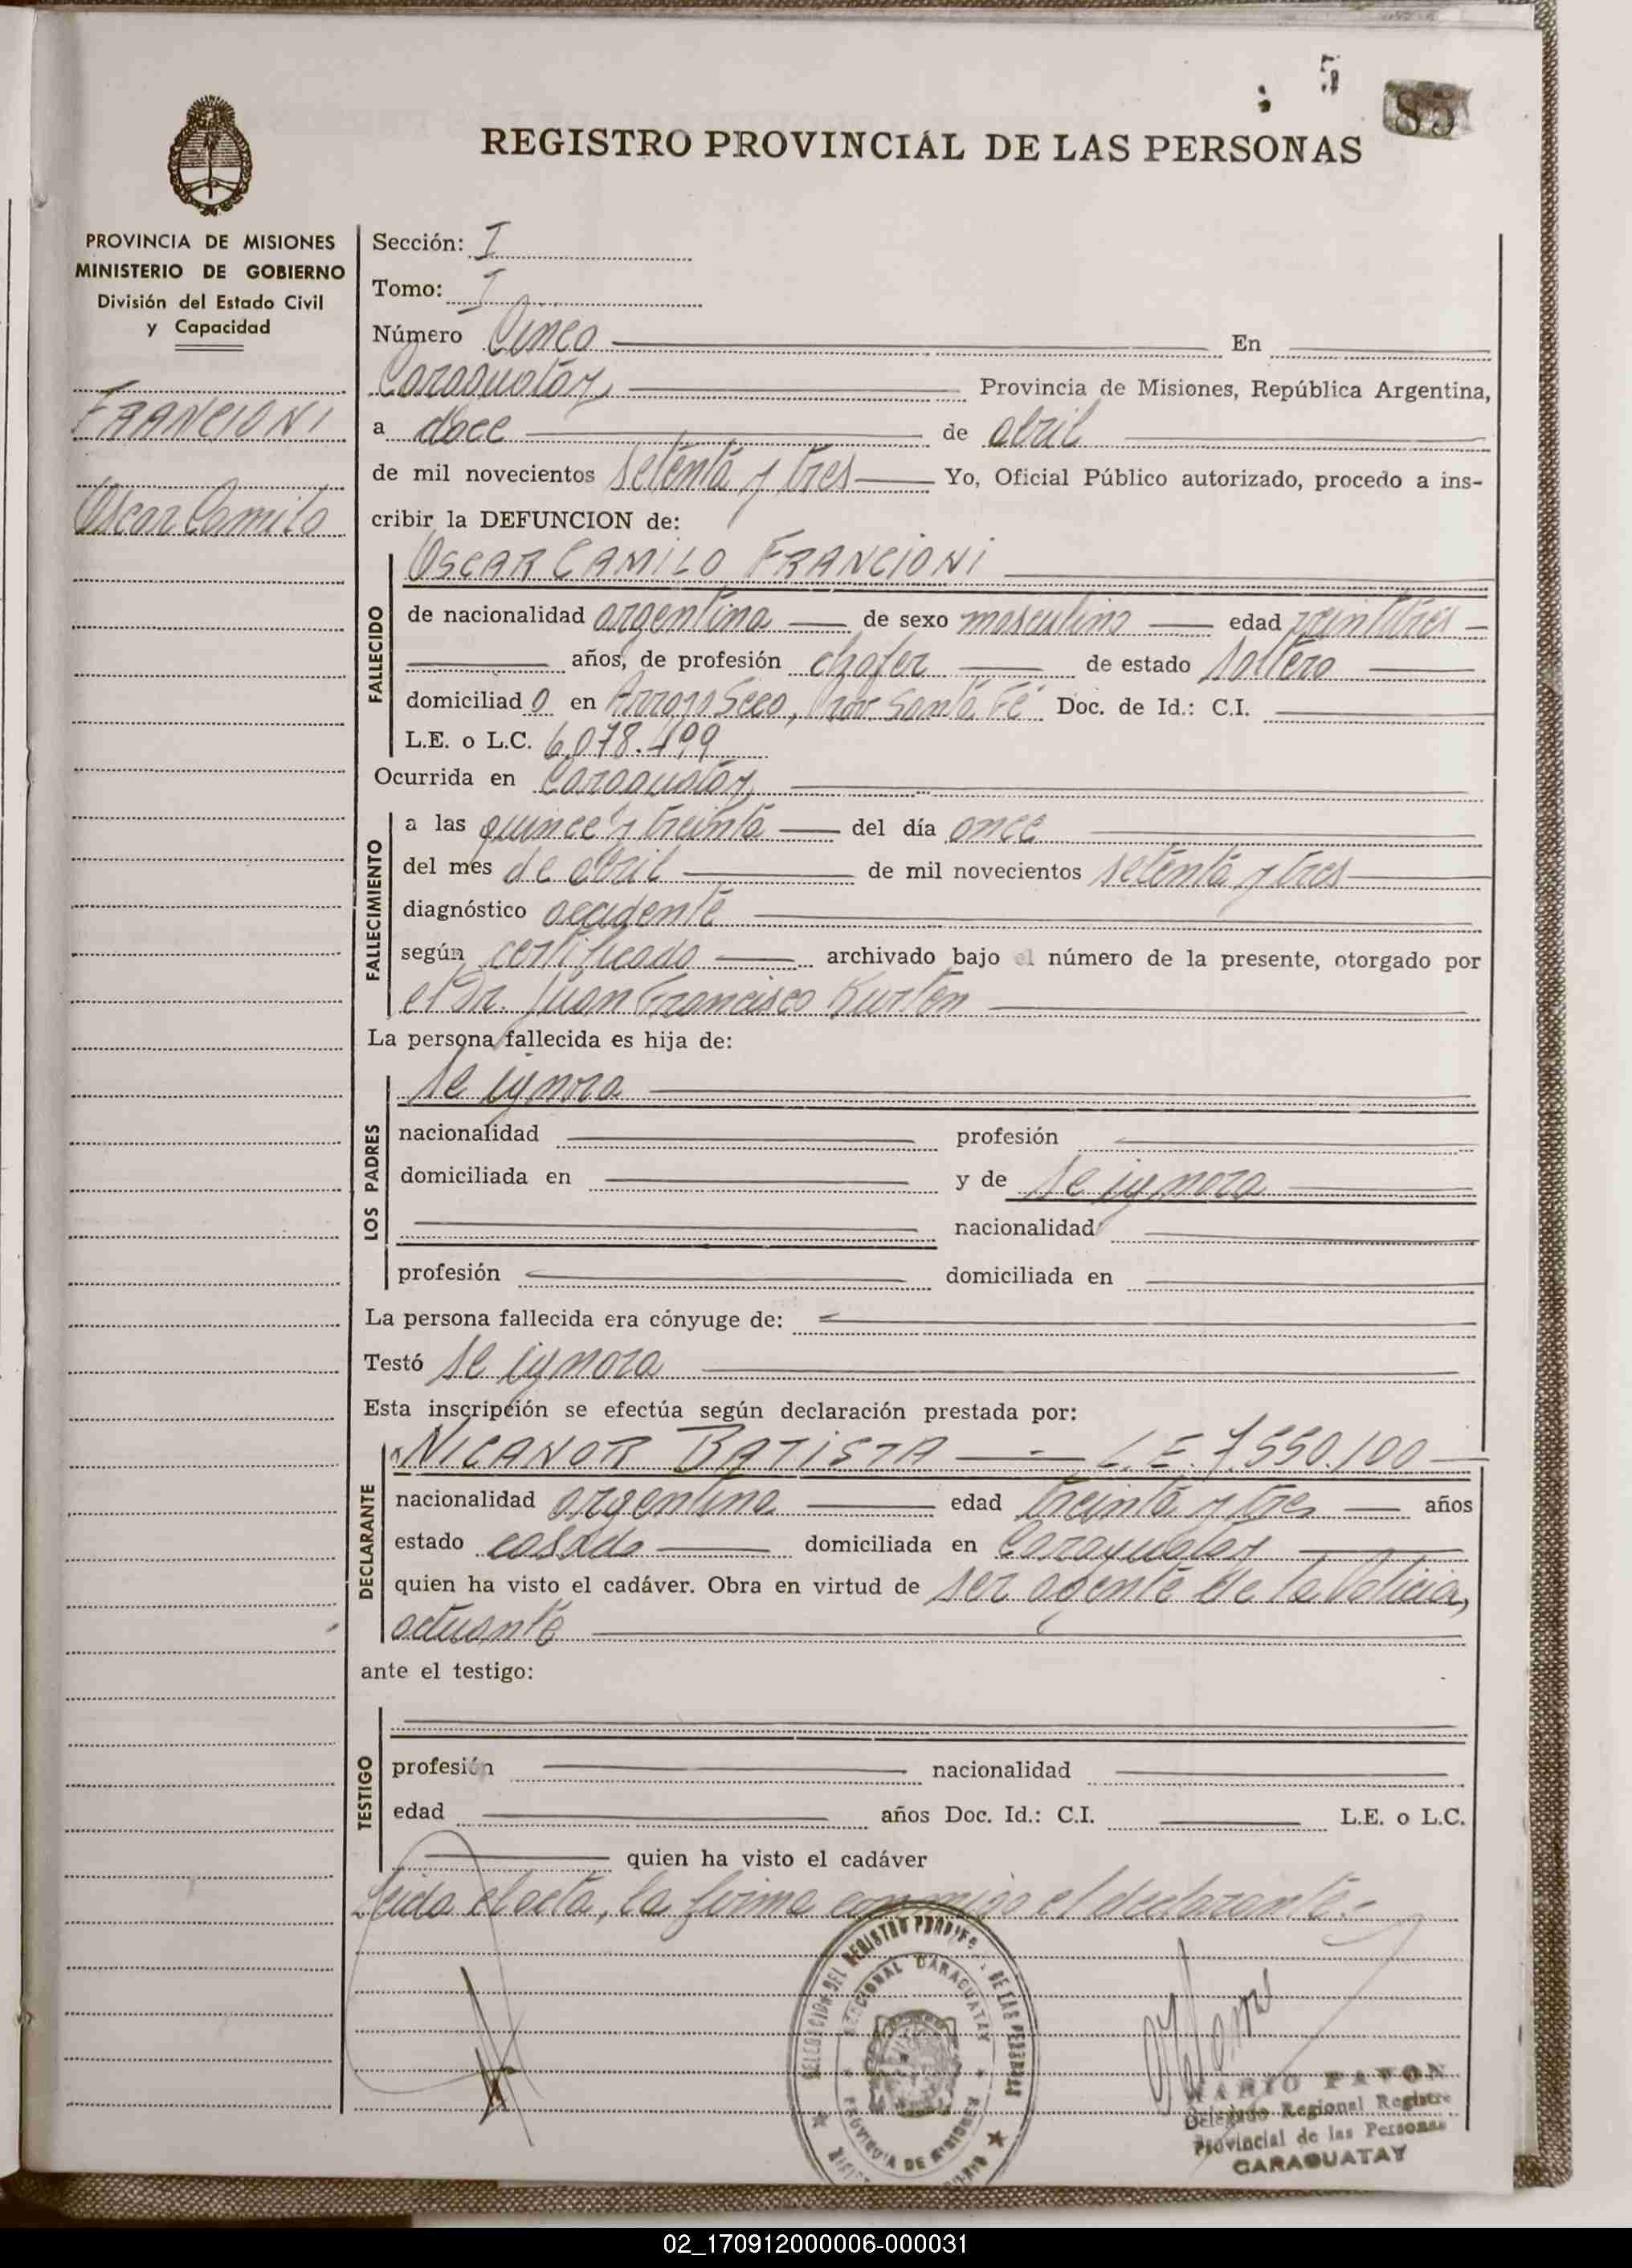 5
85
REGISTRO PROVINCIAL DE LAS PERSONAS
PROVINCIA DE MISIONES
MINISTERIO DE GOBIERNO
División del Estado Civil
y Capacidad
FRANCIONI
Oscar Camilo
Sección: I
Tomo: I
Número Cinco En
Caraguatay Provincia de Misiones, República Argentina,
a doce de abril
de mil novecientos setenta y tres Yo, Oficial Público autorizado, procedo a ins-
cribir la DEFUNCION de:
FALLECIDO
OSCAR CAMILO FRANCIONI
de nacionalidad argentina de sexo masculino edad veintitres
años, de profesión chofer de estado soltero
domiciliad o en Arroyo Seco, Prov. Santa Fé Doc. de Id.: C.I.
L.E. o L.C. 6.078.499
Ocurrida en Caraguatay
FALLECIMIENTO
a las quince y treinta del día once
del mes de abril de mil novecientos setenta y tres
diagnóstico accidente
según certificado archivado bajo el número de la presente, otorgado por
el Dr. Juan Francisco Kurten
La persona fallecida es hija de:
LOS PADRES
se ignora
nacionalidad profesión
domiciliada en y de se ignora
nacionalidad
profesión domiciliada en
La persona fallecida era cónyuge de:
Testó se ignora
Esta inscripción se efectúa según declaración prestada por:
DECLARANTE
NICANOR BATISTA - L.E. 7.550.100
nacionalidad argentina edad treinta y tres años
estado casado domiciliada en Caraguatay
quien ha visto el cadáver. Obra en virtud de ser agente de la Policia,
actuante
ante el testigo:
TESTIGO
profesión nacionalidad
edad años Doc. Id.: C.I. L.E. o L.C.
quien ha visto el cadáver
Leida el acta, la firma conmigo el declarante.-
SECCIONAL CARAGUATAY
PROVINCIA DE MISIONES
MARIO PAVON
Delegado Regional Registro
Provincial de las Personas
CARAGUATAY
02_170912000006-000031